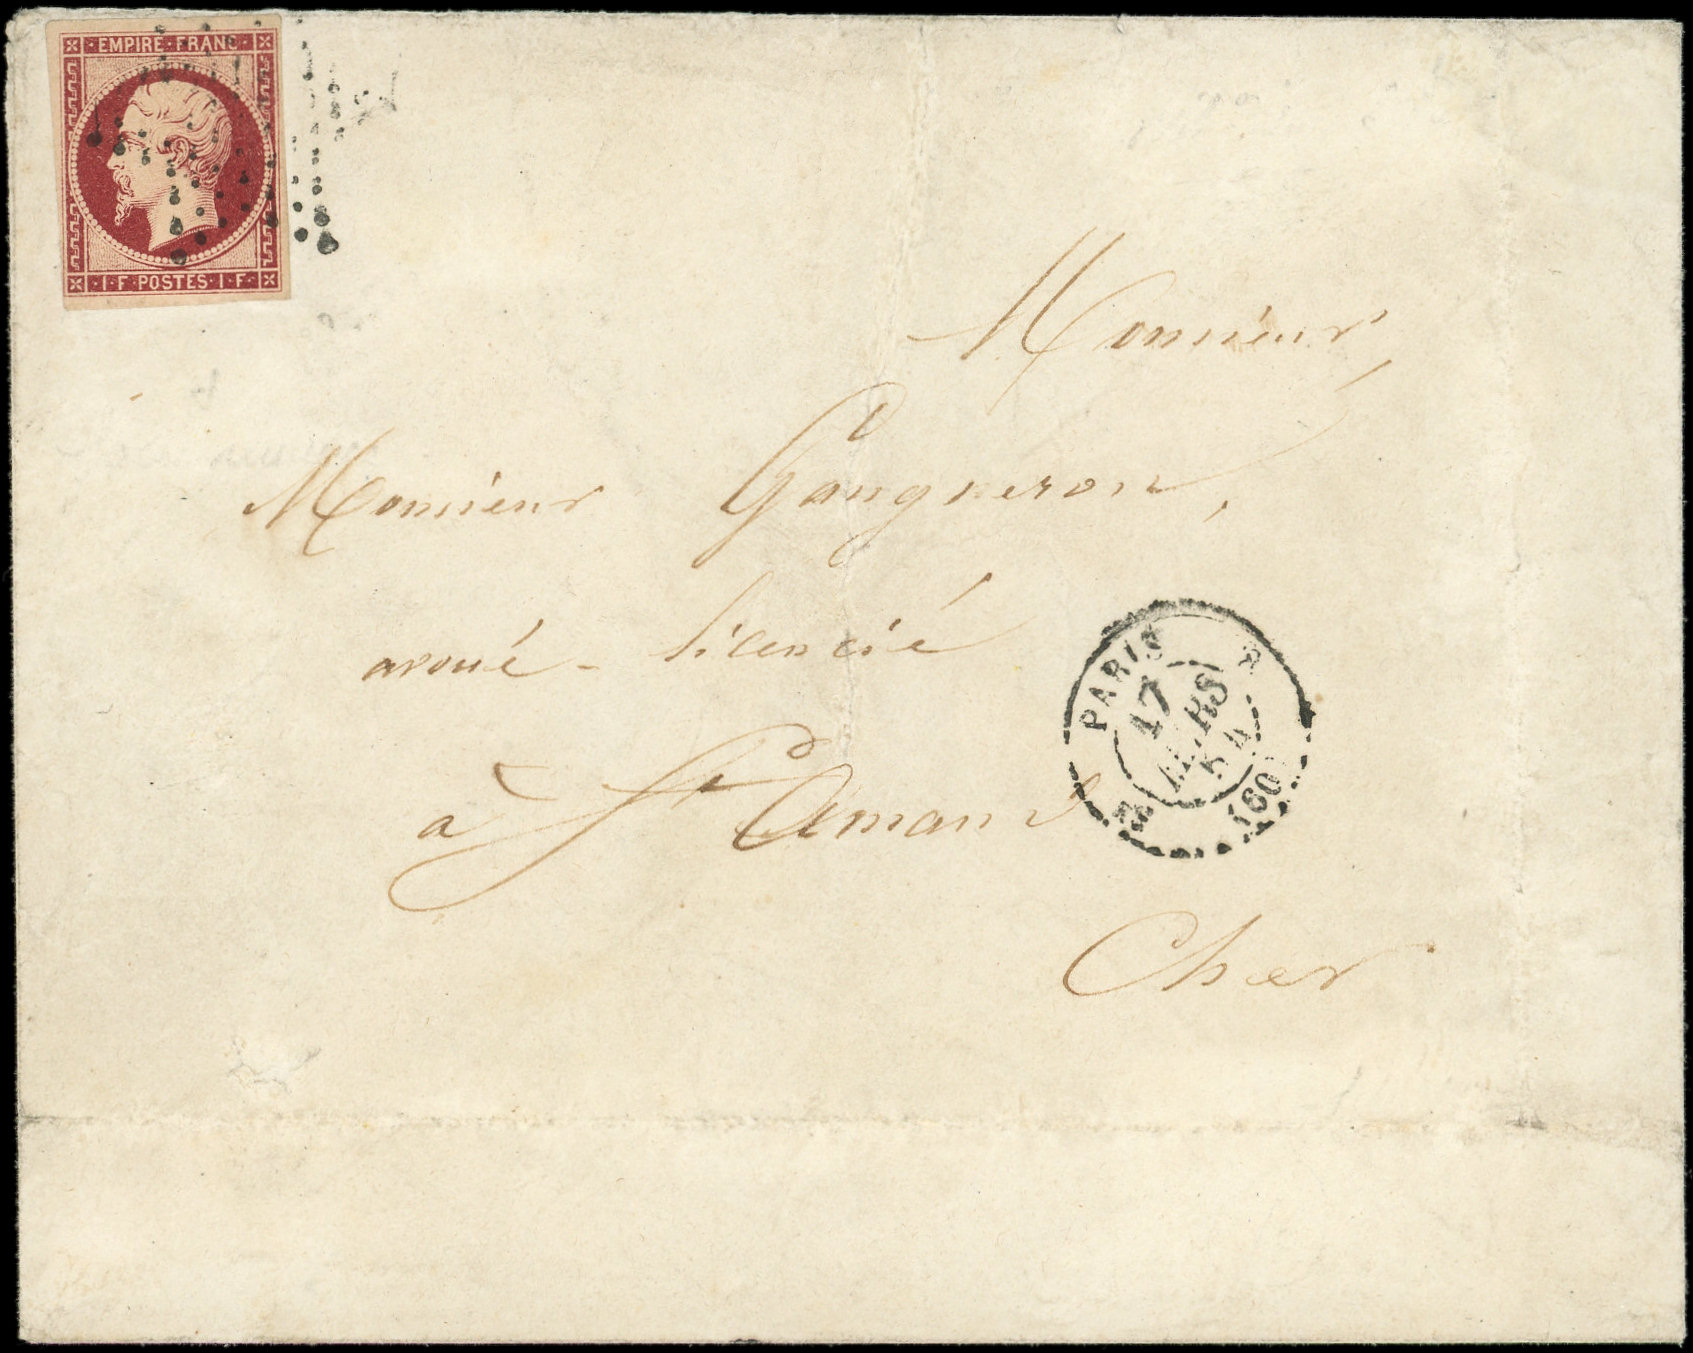 EMPIRE·FRANC·
·1·F·POSTES·1·F·
Monsieur,
Monsieur Gaugneron,
avoué - licencié
à St Amand
Cher
PARIS
17
MARS
54
(60)